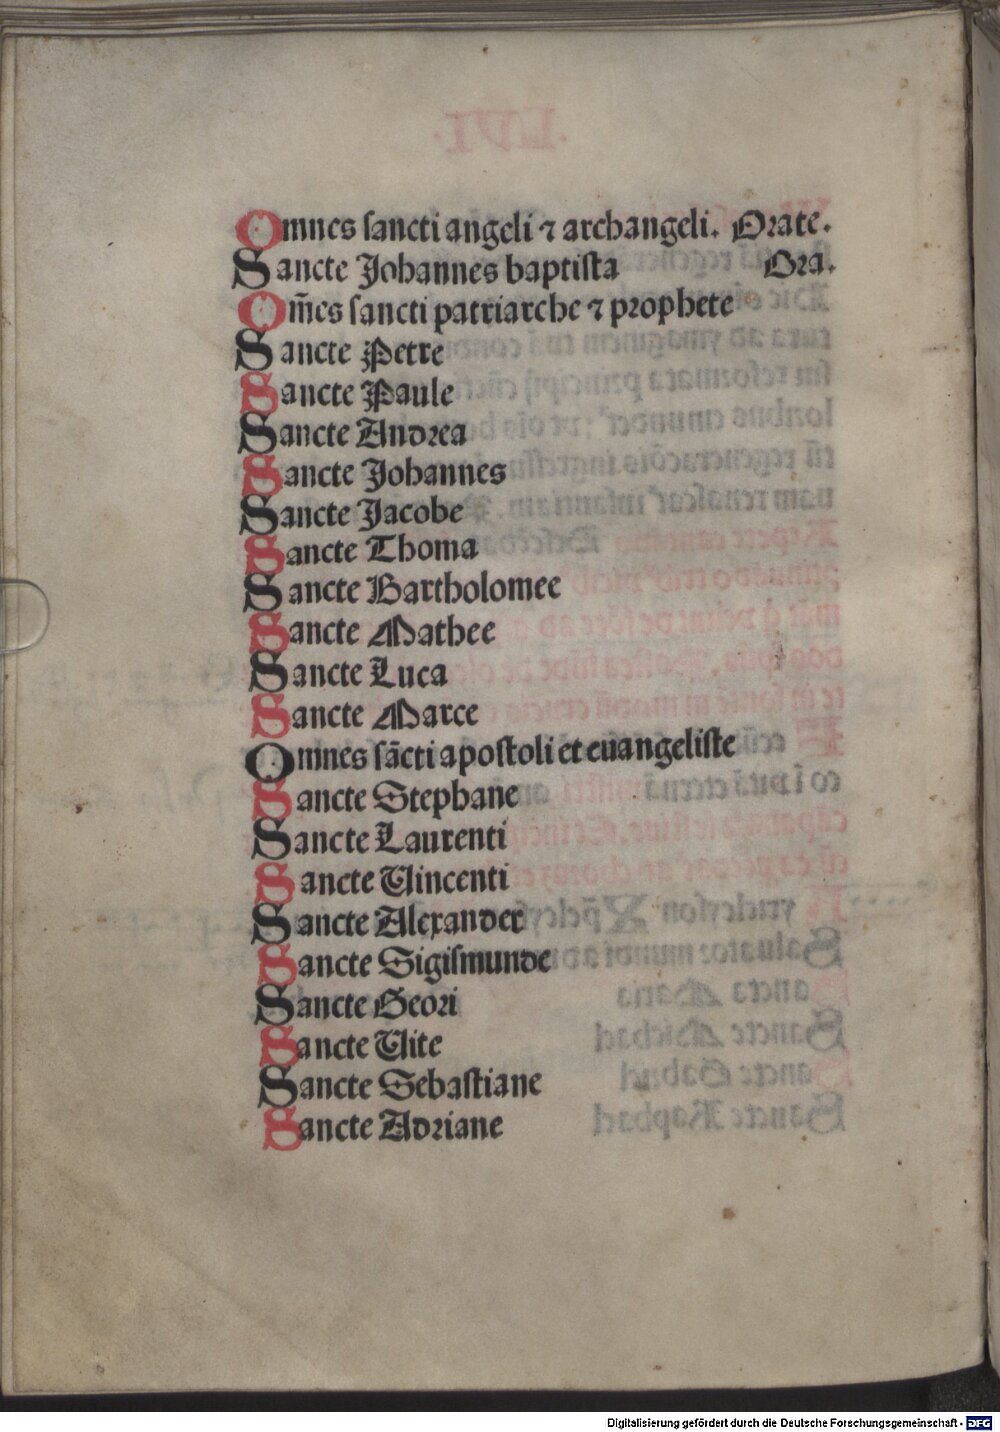 Omnes ſancti angeli ⁊ archangeli. Orate.
Sancte Johannes baptiſta Ora.
Om̄es ſancti patriarche ⁊ prophete
Sancte Petre
Sancte Paule
Sancte Andrea
Sancte Johannes
Sancte Jacobe
Sancte Thoma
Sancte Bartholomee
Sancte Mathee
Sancte Luca
Sancte Marce
Omnes ſācti apoſtoli et euangeliſte
Sancte Stephane
Sancte Laurenti
Sancte Vincenti
Sancte Alexander
Sancte Sigiſmunde
Sancte Geori
Sancte Vite
Sancte Sebaſtiane
Sancte Adriane
Digitalisierung gefördert durch die Deutsche Forschungsgemeinschaft - DFG